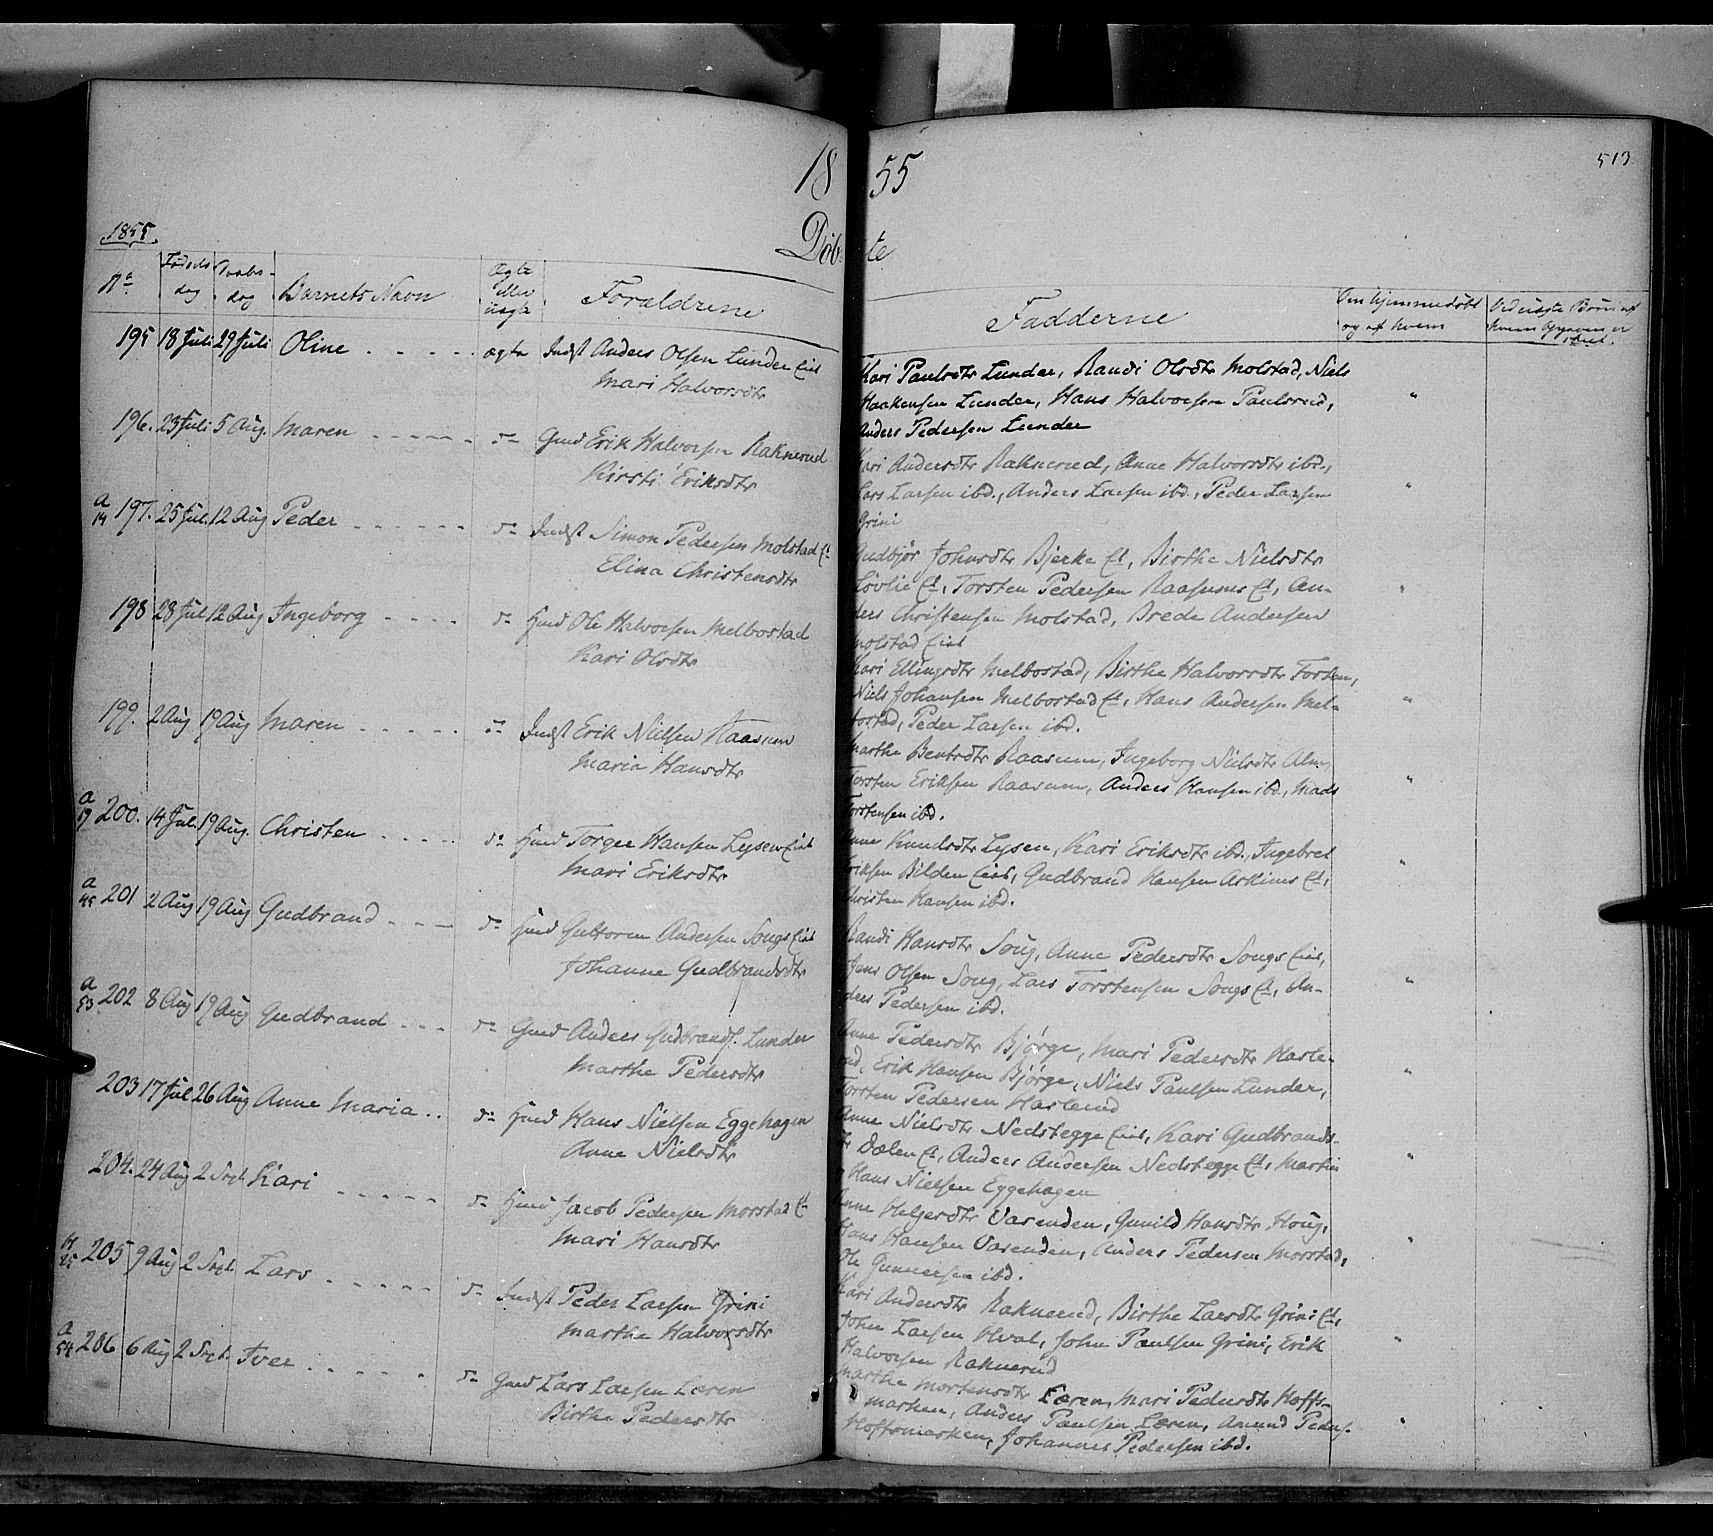 18
55
513
1855
Döb
te
No
Fødsels
dag
Daabs-
dag
Barnets Navn
Ægte
eller
uægte
Forældrene
Fadderne
Om hjemmedøbt
og af hvem
Ved uægte Børn af
hvem Opgaven er
skeet.
195 18 Juli 29 Juli Oline ægte Indst Anders Olsen Lunder Eie
Mari Halvorsdtr
Kari Paulsdtr Lunder, Randi Olsdtr Molstad, Niels
Haakensen Lunder, Hans Halvorsen Paulsrud,
Anders Pedersen Lunder
196. 23 Juli 5 Aug. Maren do Gmd Erik Halvorsen Raknerud
Kirsti Eriksdtr
Kari Andersdtr Raknerud, Anne Halvorsdtr ibd.,
Lars Larsen ibd., Anders Larsen ibd., Peder Larsen
Grini
a
14 197. 25 Jul. 12 Aug Peder do Indst Simon Pedersen Molstad Et
Elina Christensdtr
Gudbjør Johnsdtr Bjerke Et, Birthe Nielsdtr
Løvlie Et, Torsten Pedersen Raasums Et, An-
ders Christensen Molstad, Brede Andersen
Molstad Eiet
198 28 Jul 12 Aug Ingeborg do Hmd Ole Halvorsen Melbostad
Kari Olsdtr
Kari Ellingsdtr Melbostad, Birthe Halvorsdtr Forten,
Niels Johansen Melbostad Et, Hans Andersen Mel-
bostad, Peder Larsen ibd.
199. 2 Aug 19 Aug Maren do Indst Erik Nielsen Raasum
Maria Hansdtr
Marthe Bentsdtr Raasum, Ingeborg Nielsdtr Alm,
Torsten Eriksen Raasum, Anders Hansen ibd., Mads
Torstensen ibd.
a
19 200. 14 Jul. 19 Aug. Christen do Hmd Torger Hansen Lysen Eiet
Mari Eriksdtr
Anne Knudsdtr Lysen, Kari Eriksdtr ibd., Ingebret
Eriksen Bilden Eiet, Gudbrand Hansen Askims Et,
Christen Hansen ibd.
a
45 201 2 Aug 19 Aug Gudbrand do Hmd Guttorm Andersen Sougs Eiet
Johanne Gudbrandsdtr
Randi Hansdtr Soug, Anne Pedersdtr Sougs Eiet,
Jens Olsen Soug, Lars Torstensen Sougs Et, An-
ders Pedersen ibd.
a
53 202 8 Aug 19 Aug Gudbrand do Gmd Anders Gudbrands. Lunder
Marthe Pedersdtr
Anne Pedersdtr Bjørge, Mari Pedersdtr Hasle-
rud, Erik Hansen Bjørge, Niels Paulsen Lunder,
Torsten Pedersen Haslerud
203 17 Jul 26 Aug Anne Maria do Hmd Hans Nielsen Eggehagen
Anne Nielsdtr
Anne Nielsdtr Nedstegge Eiet, Kari Gudbrands-
dtr Dælen Et, Anders Andersen Nedstegge Et, Martin
Hans Nielsen Eggehagen
204. 24 Aug 2 Sept. Kari do Hmd Jacob Pedersen Morstad Et
Mari Hansdtr
Anne Helgesdtr Varenden, Gunild Hansdtr Houg,
Hans Hansen Varenden, Anders Pedersen Morstad,
Ole Gunnersen ibd.
H
25 205 9 Aug 2 Sept. Lars do Indst Peder Larsen Grini
Marthe Halvorsdtr
Kari Andersdtr Raknerud, Birthe Larsdtr Grini Et,
John Larsen Hval, John Paulsen Grini, Erik
Halvorsen Raknerud
a
54 206 6 Aug 2 Sept. Iver do Gmd Lars Larsen Læren
Birthe Pedersdtr
Marthe Mortensdtr Læren, Mari Pedersdtr Hoffs-
marken, Anders Paulsen Læren, Amund Peders.
Hoffsmarken, Johannes Pedersen ibd.